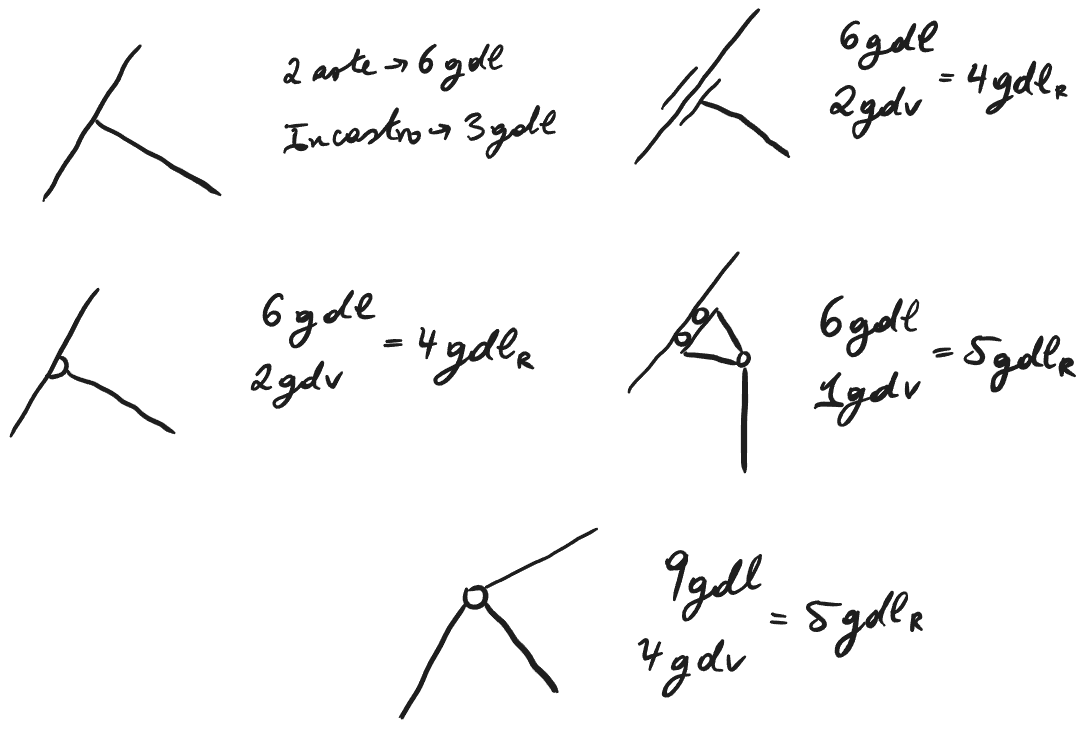 2 aste → 6 gdl
Incastro → 3 gdl
6 gdl
2 gdv = 4 gdl_R
6 gdl
2 gdv = 4 gdl_R
6 gdl
1 gdv = 5 gdl_R
9 gdl
4 gdv = 5 gdl_R